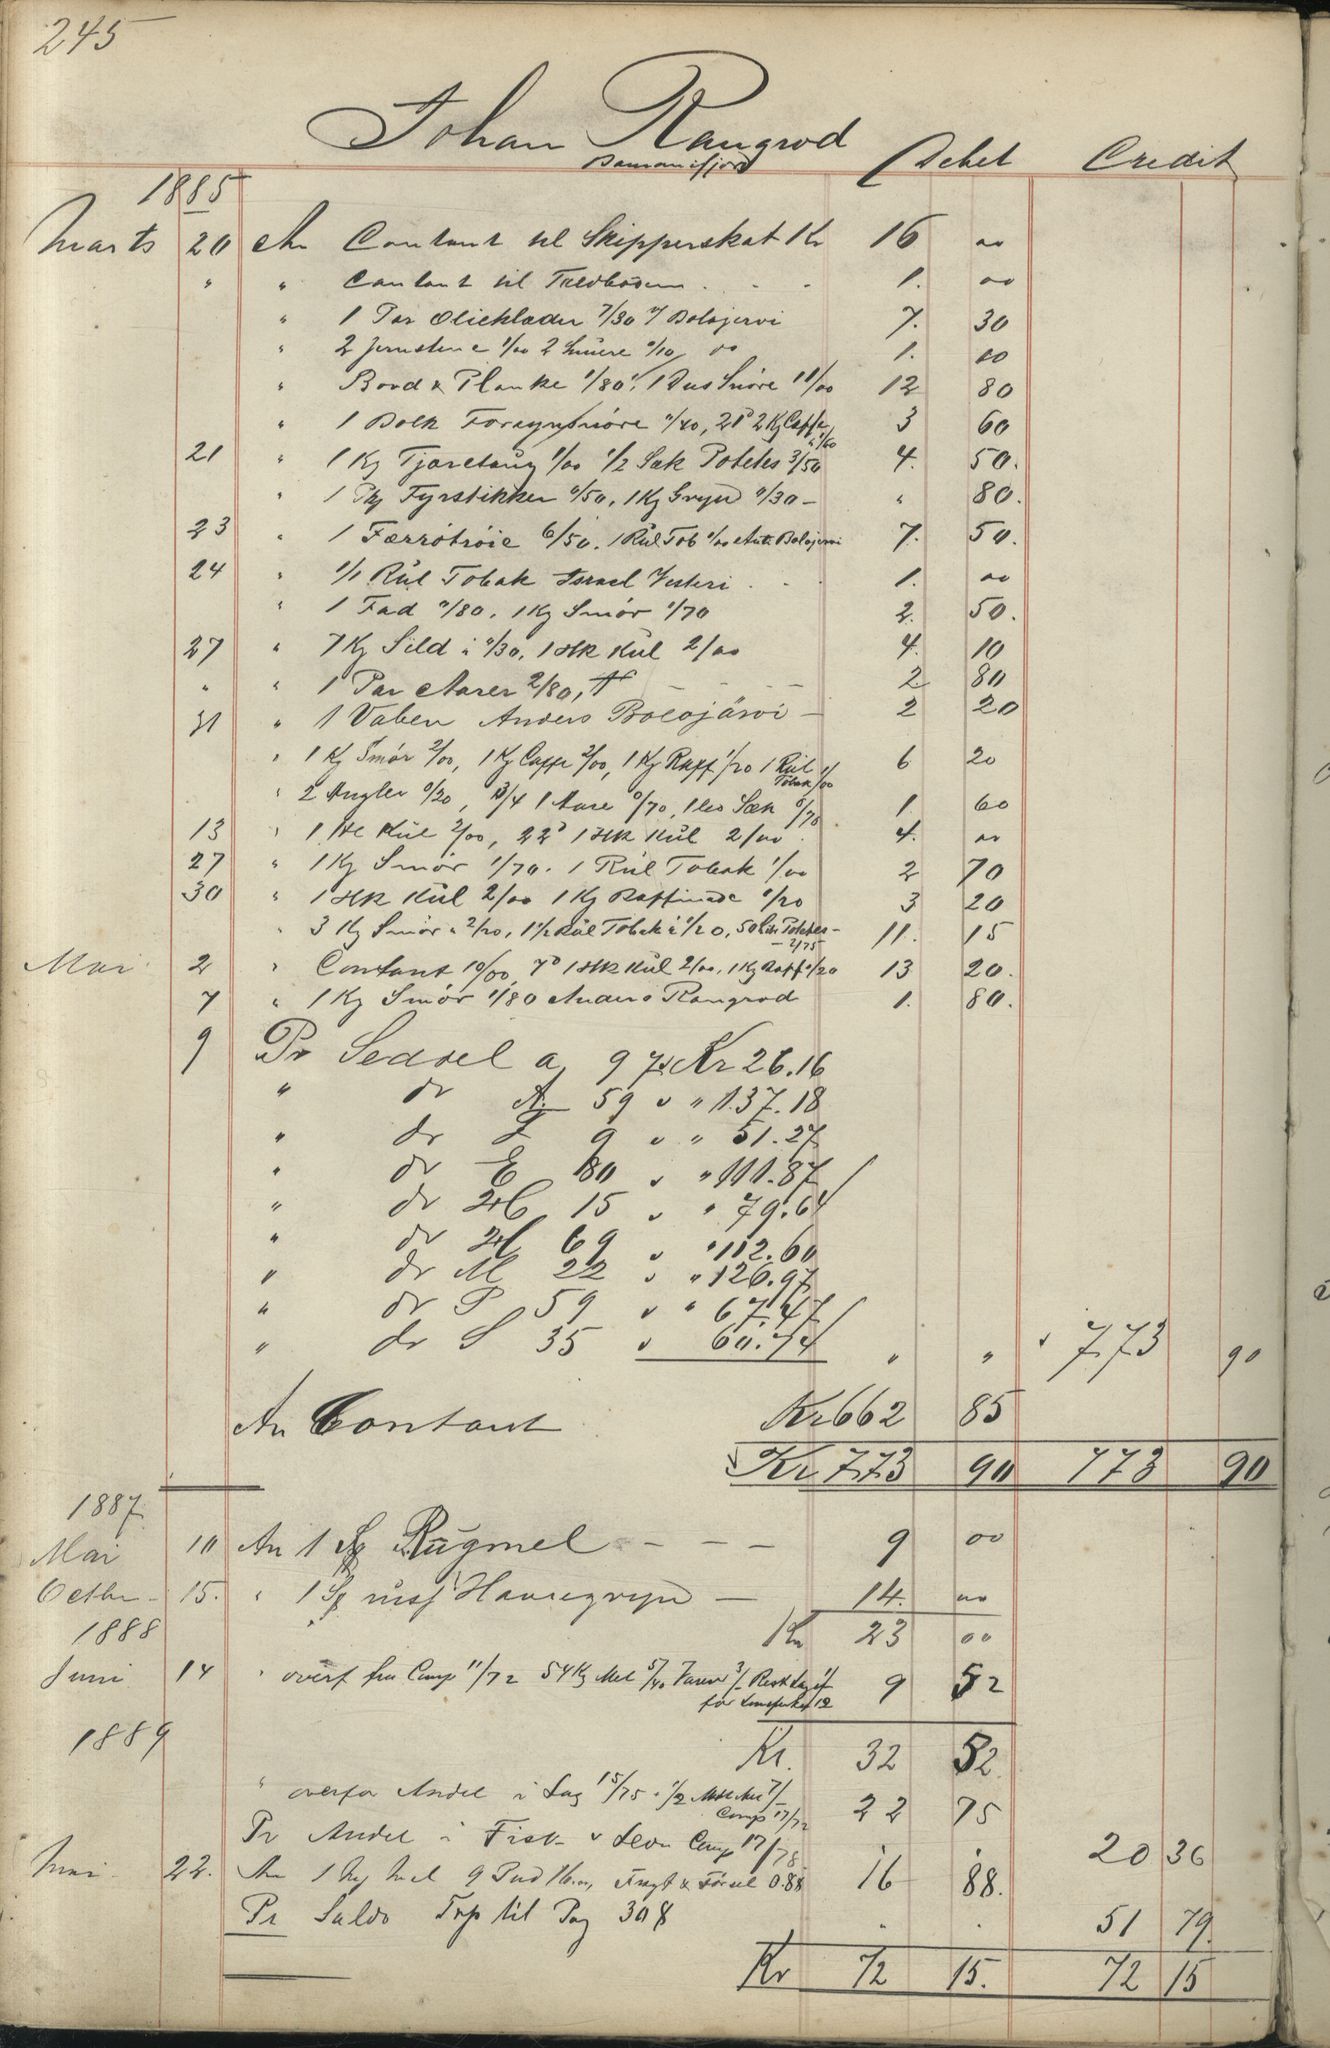 245
Johan Rangrod
Debet Credit
1885
Marts 20 An Contant til Skipperskat Kr 16 00
" " Contant til 1. 00
" 1 Par Olieklæder 7/30 Bolojervi 7. 30
" 2 Jernstene 1/00 2 1. 00
" Bord & Planke 1/80, 1 Dus Snöre 11/00 12 80
" 1 Dolk 2 Kg Caffe 3 60
21 " 1 Kg Tjæretaug 1/00 1/2 Sæk Potetes 3/50 4. 50.
" 1 Pk Fyrstikker "/50, 1 Kg Gryn "/30 – " 80.
23 " 1 Færrötröie 6/50. 1 Rül Tob 1/00 Bolojervi 7. 50.
24 " 1/1 Rül Tobak Israel 1. 00
" 1 Fad "/80. 1 Kg Smör 1/70 2. 50.
27 " 7 Kg Sild à "/30, 1 Hk Kül 2/00 4. 10
" " 1 Par Aarer 2/80, 2. 80
31 " 1 Vaben Anders Bolojärvi – 2 20
" 1 Kg Smör 2/00, 1 Kg Caffe 2/00, 1 Kg Raff 1/20 1 Rül Tobak 1/00 6 20
" 2 Angler "/20, 13/4 1 Aare "/70, 1 Sæk "/70 1. 60
13 " 1 Hk Kül 2/00, 22d 1 Hk Kül 2/00. 4. 00
27 " 1 Kg Smör 1/70. 1 Rül Tobak 1/00 2 70
30 " 1 Hk Kül 2/00 1 Kg Raffinade 1/20 3 20
" 3 Kg Smör à 2/20, 1 1/2 Rül Tobak à 1/20, 50 Potetes – 2/75 11. 15
Mai 2 " Contant 10/00, 7d 1 Hk Kül 2/00, 1 Kg Raff 1/20 13 20.
7 " 1 Kg Smör 1/80 Anders Rangrod 1. 80.
9 Pr Seddel a 97 Kr 26.16
" do A. 59 " " 137.18
" do 9 " " 51.27
" do E 80 " " 111.87
" do 15 " " 79.64
" do 69 " " 112.60
" do M 22 " " 126.97
" do P 59 " " 67.47
" do S 35 " 60.74 " " " 773 90
An Contant Kr 662 85
Kr 773 90 773 90
1887
Mai 10 An 1 Rügmel – – – 9 00
Octbr – 15. " 1 Havregryn – 14. 00
1888 Kr 23 00
Juni 14 " overf fra Comp 11/72 54 Kg Mel 5/40 Varer 3/– 9 52
1889 Kr. 32 52
" overfor Andel i Lag 15/75 Comp 17/72 22 75
Pr Andel i Fisk Comp 17/78 20 36
Mai 22. An 1 Mel 9 Pud 16.00, Fragt & 0.88 16 88.
Pr Saldo Trp til Pag 308 " " 51 79.
Kr 72 15. 72 15